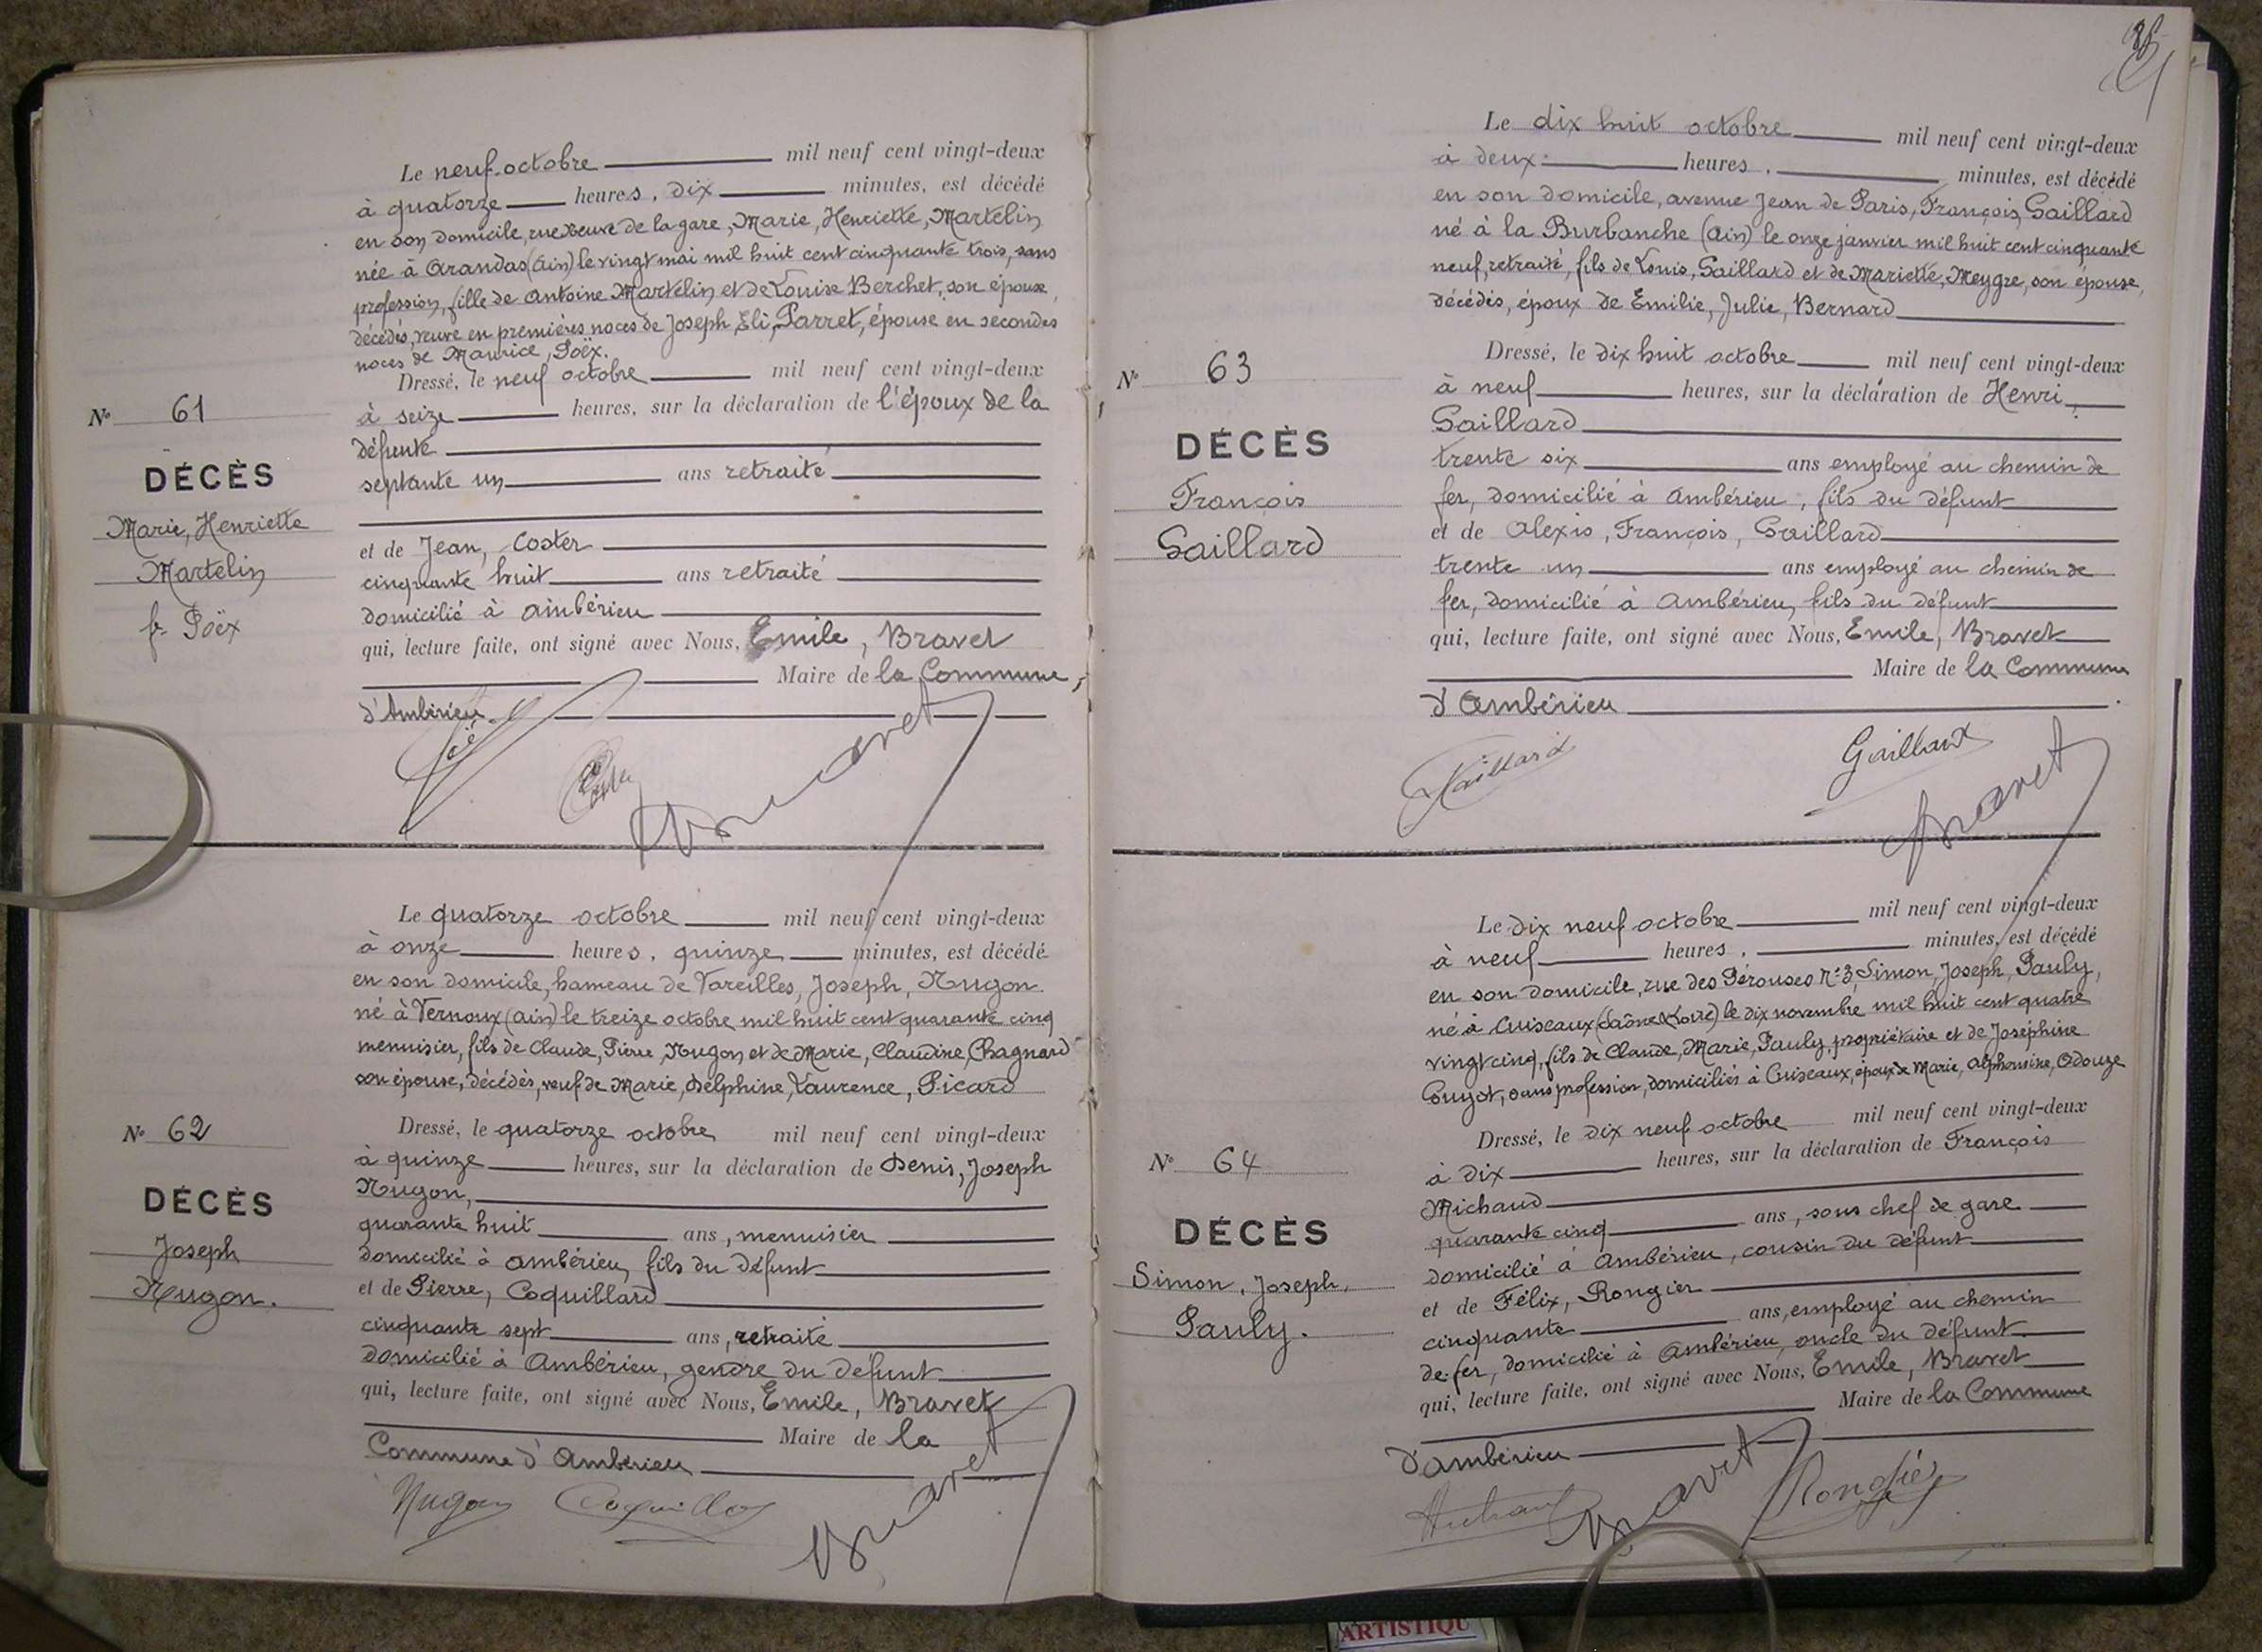 Le neuf octobre mil neuf cent vingt-deux
à quatorze heures, dix minutes, est décédé
en son domicile, rue neuve de la gare, Marie, Henriette, Martelin
née à Arandas (Ain) le vingt mai mil huit cent cinquante trois, sans
profession, fille de Antoine Martelin et de Louise Berchet, son épouse,
décédés, veuve en premières noces de Joseph, Eli, Parret, épouse en secondes
noces de Maurice, Poëx.
Dressé, le neuf octobre mil neuf cent vingt-deux
à seize heures, sur la déclaration de l'époux de la
défunte
septante un ans retraité
et de Jean, Coster
cinquante huit ans retraité
domicilié à ambérieu
qui, lecture faite, ont signé avec Nous, Emile, Bravet
Maire de la Commune,
d'Ambérieu
Bravet
N° 61
DÉCÈS
Marie, Henriette
Martelin
f. Poëx
Le quatorze octobre mil neuf cent vingt-deux
à onze heures, quinze minutes, est décédé
en son domicile, hameau de Vareilles, Joseph, Nugon
né à Vernoux (ain) le treize octobre mil huit cent quarante cinq
menuisier, fils de Claude, Pierre, Nugon et de Marie, Claudine, Chagnard
son épouse, décédés, veuf de Marie, Delphine, Laurence, Picard
Dressé, le quatorze octobre mil neuf cent vingt-deux
à quinze heures, sur la déclaration de Denis, Joseph
Nugon,
quarante huit ans, menuisier
domicilié à ambérieu, fils du défunt
et de Pierre, Coquillard
cinquante sept ans, retraité
domicilié à Ambérieu, gendre du défunt
qui, lecture faite, ont signé avec Nous, Emile, Bravet
Maire de la
Commune d'Ambérieu
Nugon Coquillard Bravet
N° 62
DÉCÈS
Joseph
Nugon.
Le dix huit octobre mil neuf cent vingt-deux
à deux heures, minutes, est décédé
en son domicile, avenue Jean de Paris, François, Gaillard
né à la Burbanche (Ain) le onze janvier mil huit cent cinquante
neuf, retraité, fils de Louis, Gaillard et de Mariette, Meygre, son épouse,
décédés, époux de Emilie, Julie, Bernard
Dressé, le dix huit octobre mil neuf cent vingt-deux
à neuf heures, sur la déclaration de Henri,
Gaillard
trente six ans employé au chemin de
fer, domicilié à Ambérieu, fils du défunt
et de Alexis, François, Gaillard
trente un ans employé au chemin de
fer, domicilié à Ambérieu, fils du défunt
qui, lecture faite, ont signé avec Nous, Emile, Bravet
Maire de la Commune
d'Ambérieu
Gaillard Gaillard
Bravet
N° 63
DÉCÈS
François
Gaillard
Le dix neuf octobre mil neuf cent vingt-deux
à neuf heures, minutes, est décédé
en son domicile, rue des Pérouses N° 3, Simon, Joseph, Pauly,
né à Cuiseaux (Saône & Loire) le dix novembre mil huit cent quatre
vingt cinq, fils de Claude, Marie, Pauly, propriétaire et de Joséphine
Guyot, sans profession, domiciliés à Cuiseaux, époux de Marie, Alphonsine, Odouze
Dressé, le dix neuf octobre mil neuf cent vingt-deux
à dix heures, sur la déclaration de François
Michaud
quarante cinq ans, sous chef de gare
domicilié à Ambérieu, cousin du défunt
et de Félix, Rongier
cinquante ans, employé au chemin
de fer, domicilié à Ambérieu, oncle du défunt
qui, lecture faite, ont signé avec Nous, Emile, Bravet
Maire de la Commune
d'ambérieu
Bravet Rongier
N° 64
DÉCÈS
Simon, Joseph,
Pauly.
ARTISTIQU